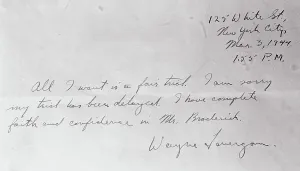 125 White St,
New York City,
Mar. 3, 1944
1:55 P.M.
All I want is a fair trial. I am sorry
my trial has been delayed. I have complete
faith and confidence in Mr. Broderick.
Wayne Lonergan.